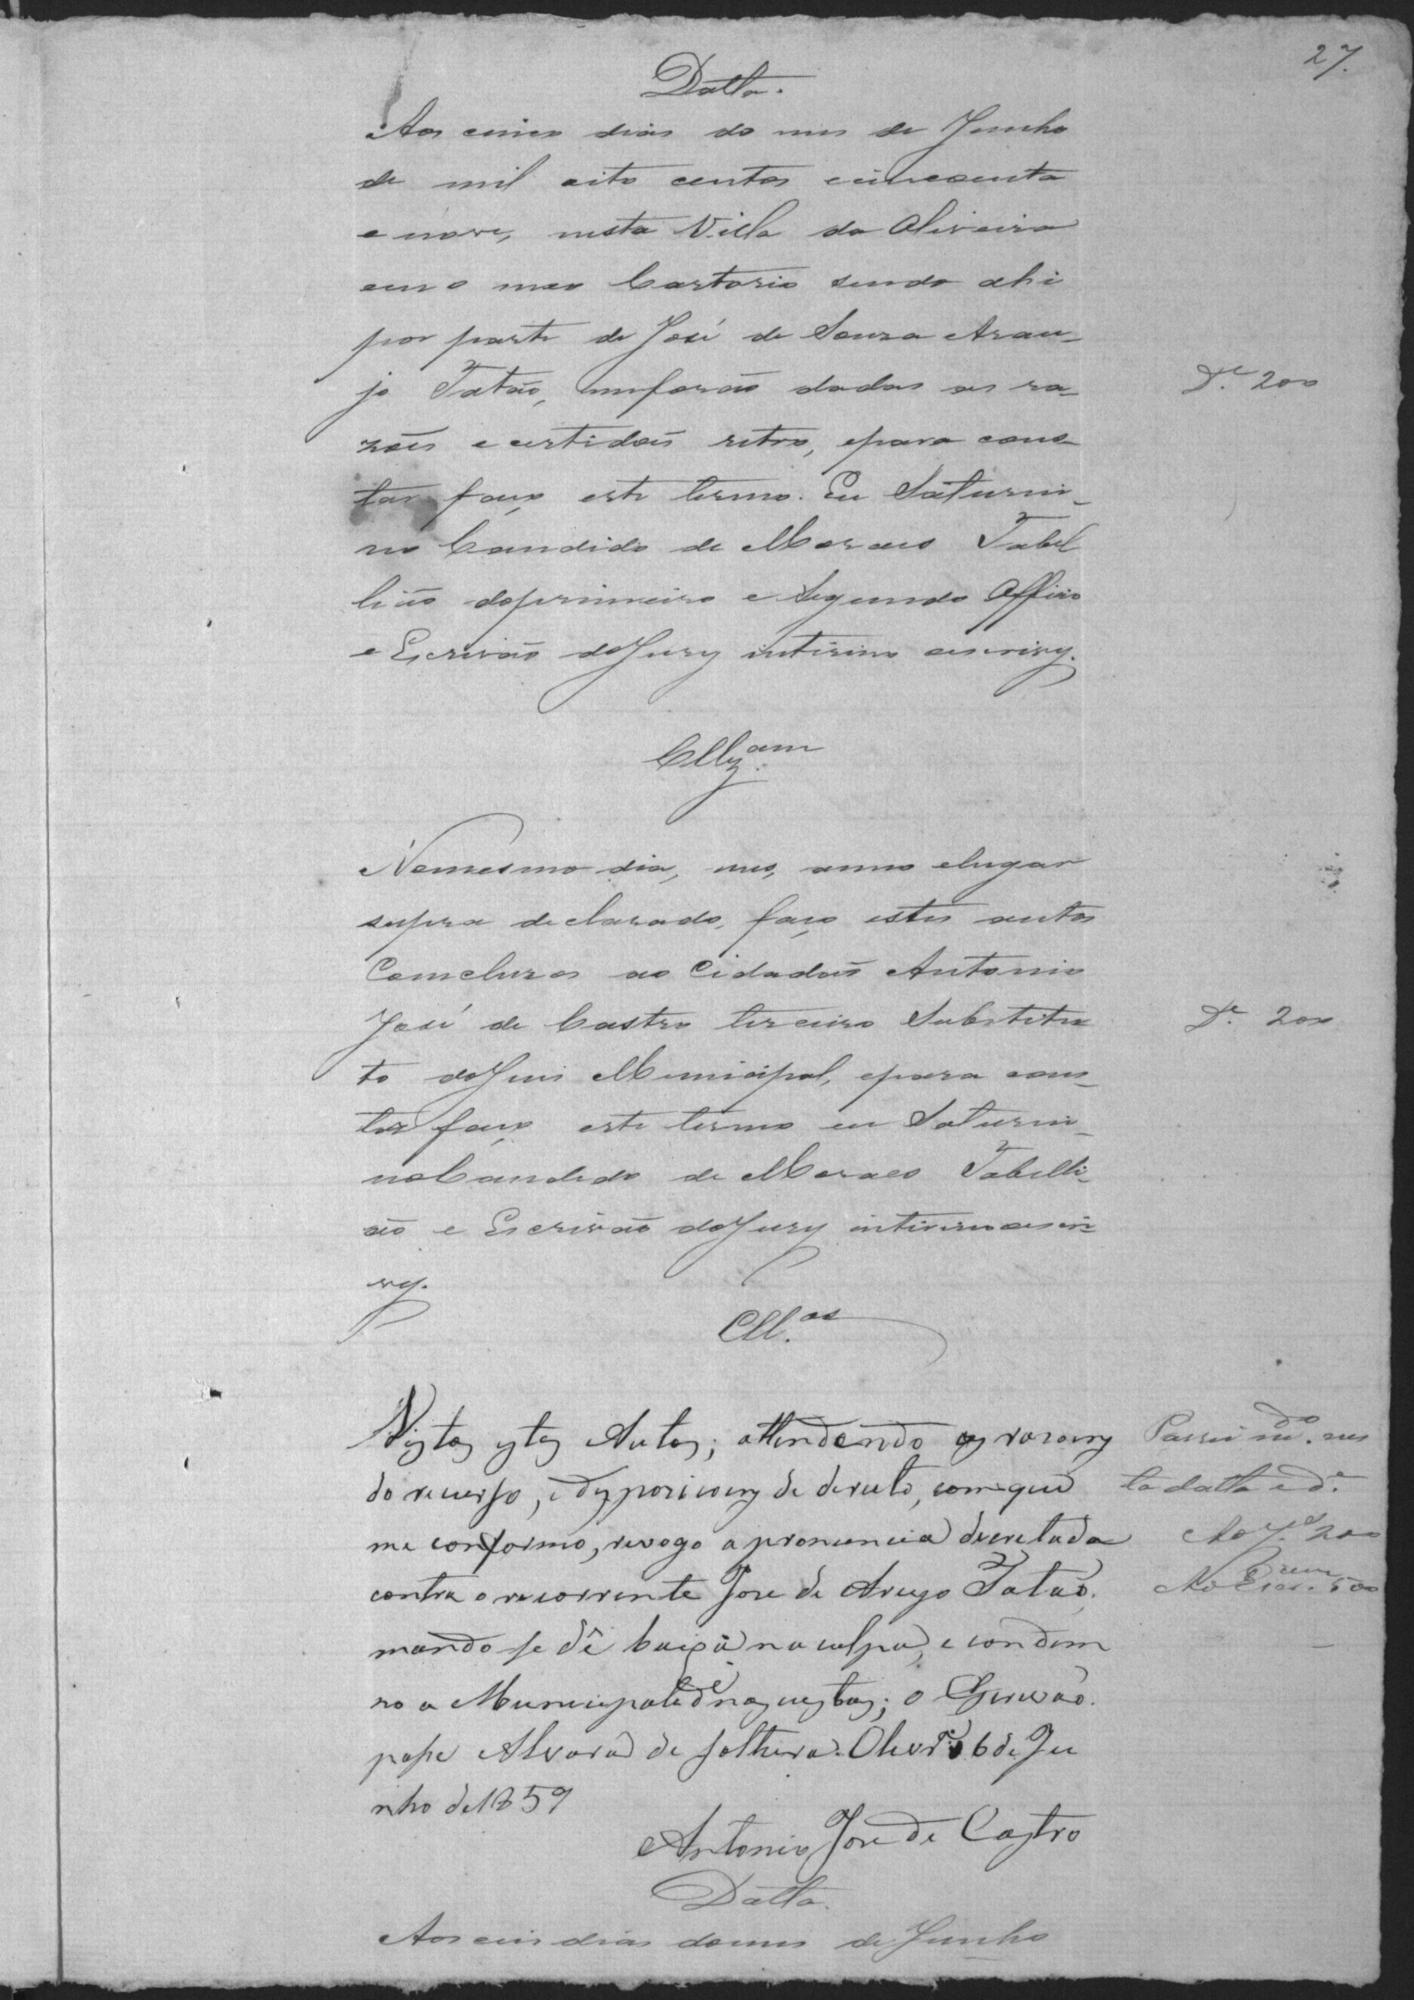 27.
Datta.
Aos cinco dias do mes de Junho
de mil oito centos cincoenta
e nove, nesta Villa da Oliveira
em o meo Cartorio sendo ahi
por parte de José de Souza Arau-
jo Tatão, meforão dadas as ra-
zoẽs e certidoẽs retro, epara cons-
tar faço este termo. Eu Saturni-
no Candido de Moraes Tabel
lião doprimeiro e Segundo Officio
e Escrivão doJury interino oescrivy.
Cllzam
Nomesmo dia, mes, anno elugar
supra declarado, faço estes autos
Concluzos ao Cidadão Antonio
José de Castro terceiro Substitu
to doJuis Municipal, epara cons-
tar faço este termo eu Saturni-
noCandido de Moraes Tabelli-
ão e Escrivão doJury interino oescri-
vy.
Cll.os
D.e 200
D.e 200
Vistos estes Autos; attendendo as rasoens
do recurso, e desposicoens de dereito, com que
me conformo, revogo a pronuncia decretada
contra o recorrente Jose de Araujo Tatão,
mando se dê baixa na culpa, e condem
no a Municipalide nas custas; o Escrivão
passe Alvará de soltura. Olivra 6 de Ju
nho de 1859
Antonio Jose de Castro
Passei mdo. nes
ta datta e d.e
Ao J.s 200
Ao Escr. 500
Datta.
Aos seis dias domes de Junho